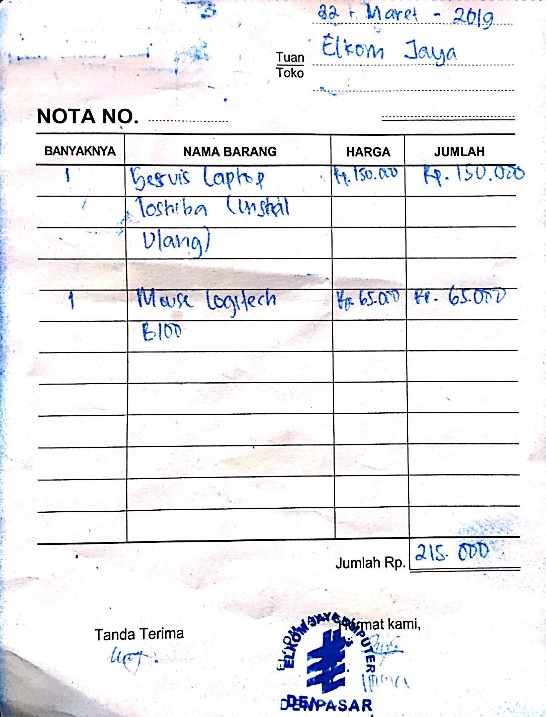 22 Maret - 2019
Tuan Elkom Jaya
Toko
NOTA NO.
BANYAKNYA NAMA BARANG HARGA JUMLAH
1 Servis Laptop Rp. 150.000 Rp. 150.000
Toshiba (Instal
Ulang)
1 Mouse Logitech Rp. 65.000 Rp. 65.000
B100
Jumlah Rp. 215.000
Tanda Terima Hormat kami,
ELKOM JAYA COMPUTER
DENPASAR